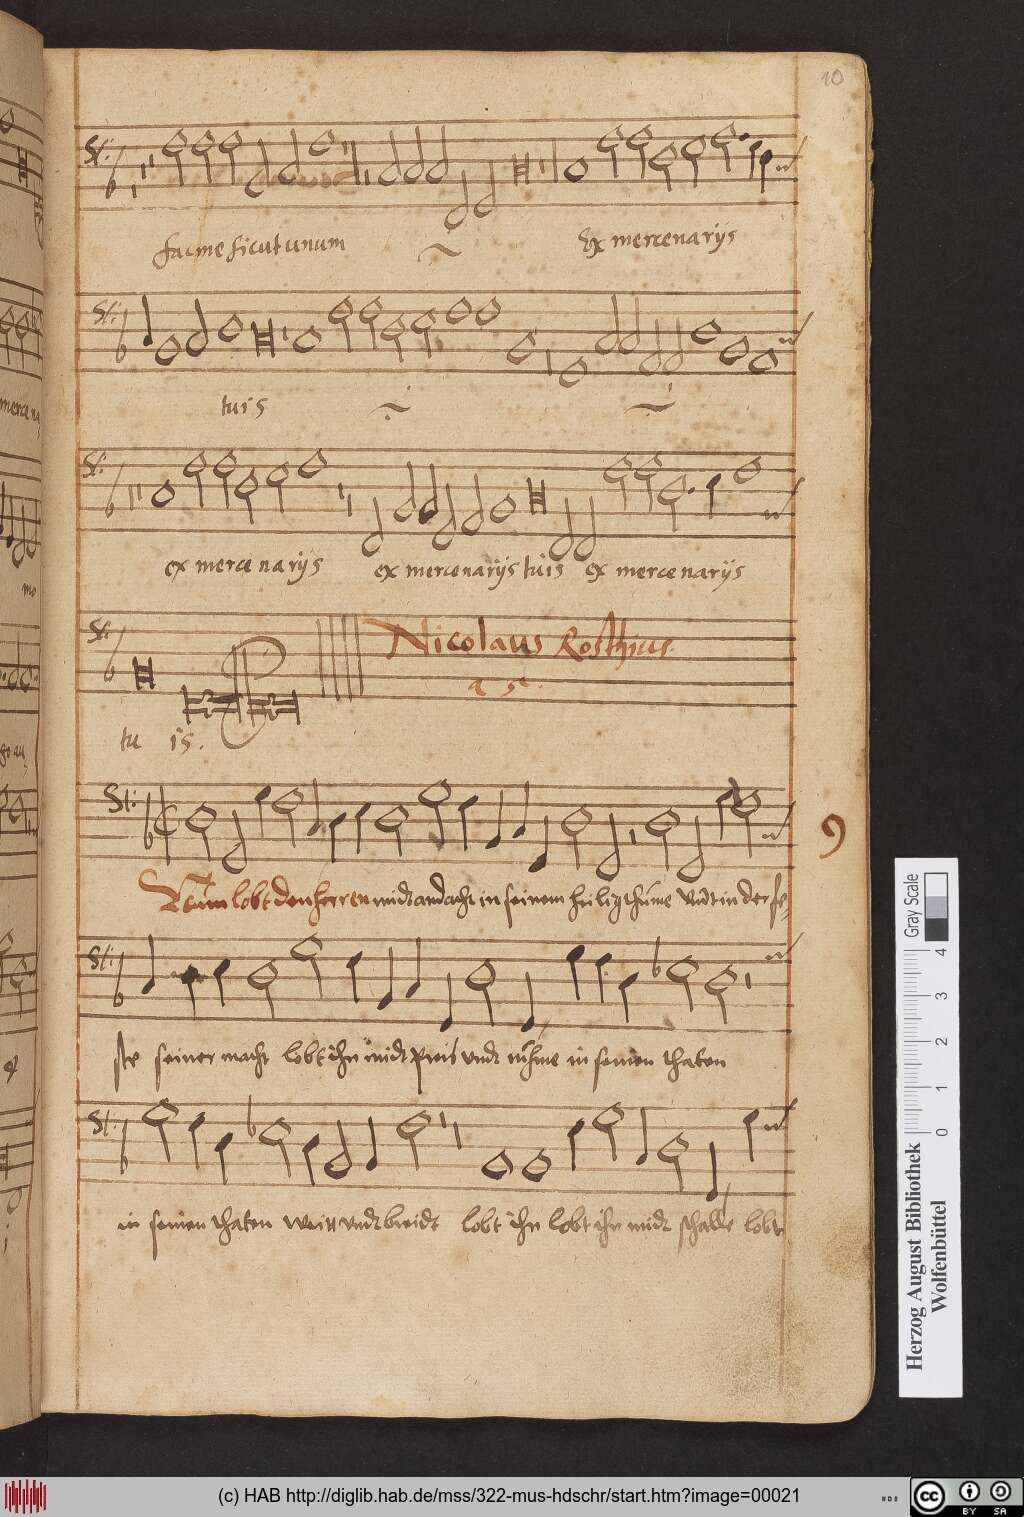 10
fac me sicut unum ex mercenarijs
tuis
ex mercenarijs ex mercenarijs tuis ex mercenarijs
Nicolaus Rosthius.
a 5.
tu is.
9
Nun lobt den herren midt andacht in seinem heiligthume undt in der fe-
ste seiner macht lobt ihn midt Preis undt rühme in seinen thaten
in seinen thaten weitt undt breidt lobt ihn lobt ihn midt schalle lobt
Gray Scale
4 3 2 1 0
Herzog August Bibliothek
Wolfenbüttel
(c) HAB http://diglib.hab.de/mss/322-mus-hdschr/start.htm?image=00021
cc BY SA